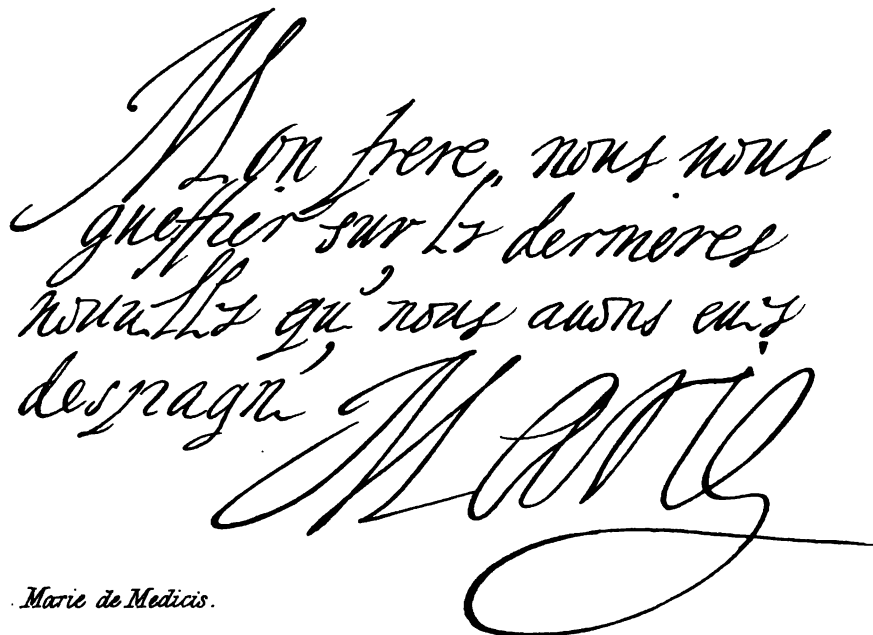 Mon frere, nous nous
gueffier sur les dernieres
nouuelles que nous auons eues
despagne
Marie
Marie de Medicis.